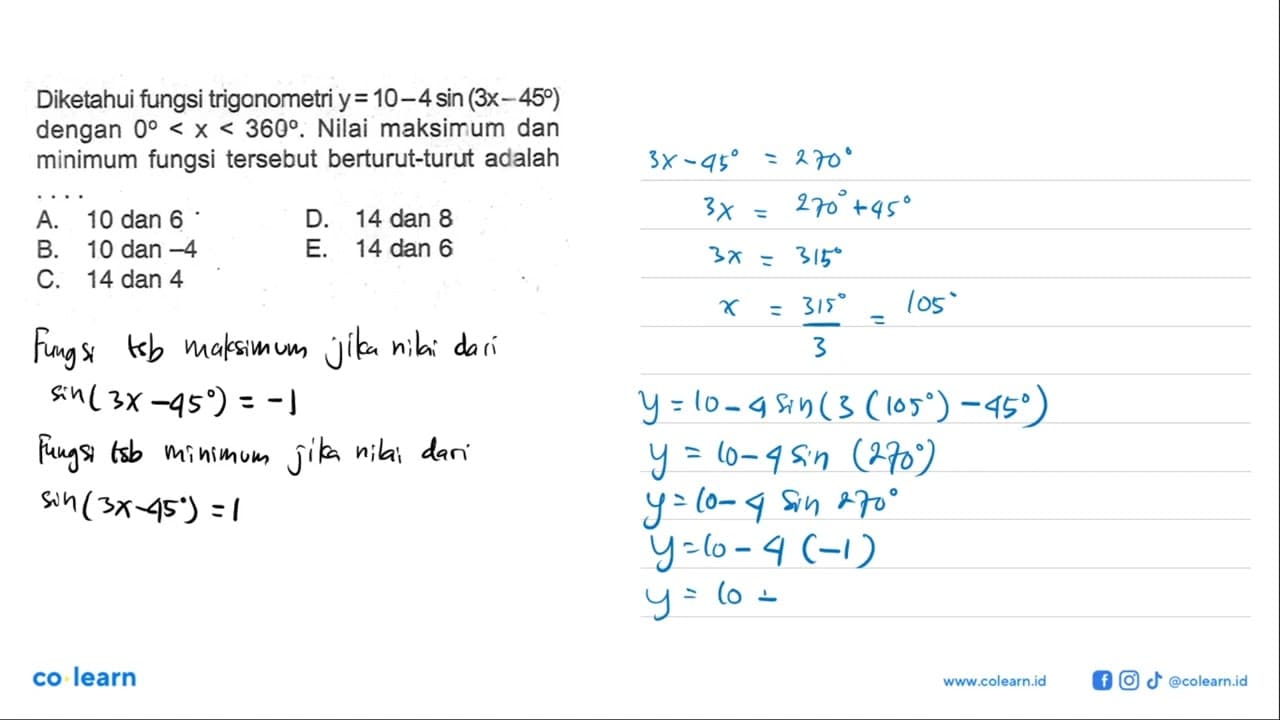 Diketahui fungsi trigonometri y = 10 – 4 sin (3x – 45°)
dengan 0° < x < 360°. Nilai maksimum dan
minimum fungsi tersebut berturut-turut adalah
. . . .
A. 10 dan 6
B. 10 dan –4
C. 14 dan 4
D. 14 dan 8
E. 14 dan 6
Fungsi tsb maksimum jika nilai dari
sin(3x – 45°) = -1
Fungsi tsb minimum jika nilai dari
sin(3x-45°) = 1
3x - 45° = 270°
3x = 270° + 45°
3x = 315°
x = 315°/3 = 105°
y = 10 - 4 sin(3(105°) - 45°)
y = 10 - 4 sin (270°)
y = 10 - 4 sin 270°
y = 10 - 4 (-1)
y = 10 +
co·learn
www.colearn.id
@colearn.id